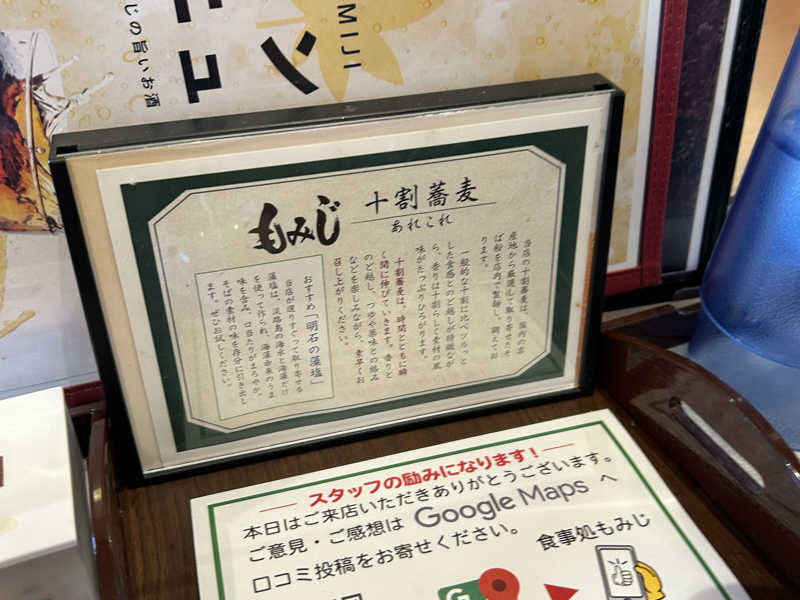 MIJI
ン
ニュ
じの旨いお酒
もみじ
十割蕎麦
あれこれ
当店の十割蕎麦は、国内の名
産地から厳選して取り寄せたそ
ば粉を店内で製麺し、調えてお
ります。
一般的な十割に比べツルっと
した食感とのど越しが特徴なが
ら、香りは十割らしく素材の風
味がたっぷりひろがります。
十割蕎麦は、時間とともに瞬
く間に伸びていきます。香りと
のど越し、つゆや薬味との絡み
などを楽しみながら、素早くお
召し上がりください。
おすすめ「明石の藻塩」
当店が選りすぐって取り寄せる
藻塩は、淡路島の海水と海藻だけ
を使って作られ、海藻由来のうま
味を含み、口当たりがまろやか。
そばの素材の味を存分に引き出し
ます。ぜひお試しください。
スタッフの励みになります!
本日はご来店いただきありがとうございます。
ご意見・ご感想は Google Maps へ
口コミ投稿をお寄せください。
食事処もみじ
G